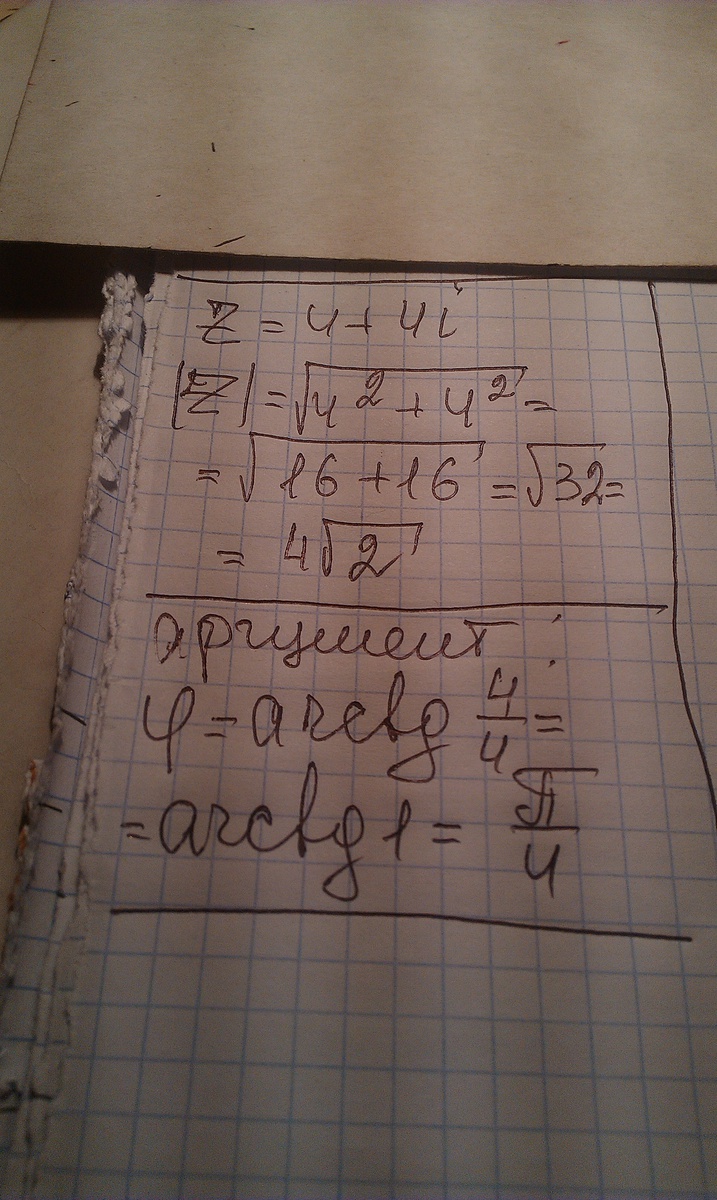 Z = 4 + 4i
|Z| = √(4² + 4²) =
= √(16 + 16) = √32 =
= 4√2
аргумент :
φ = arctg 4/4 =
= arctg 1 = π/4